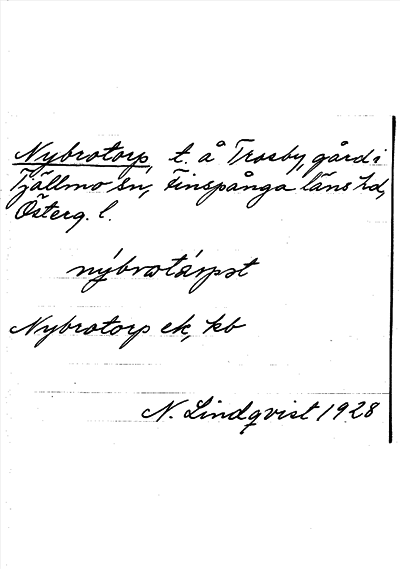 Nybrotorp, t. å Trosby, gård i
Tjällmo sn, Finspånga läns hd,
Österg. l.
nýbrotàrpet
Nybrotorp ek, kb
N. Lindqvist 1928